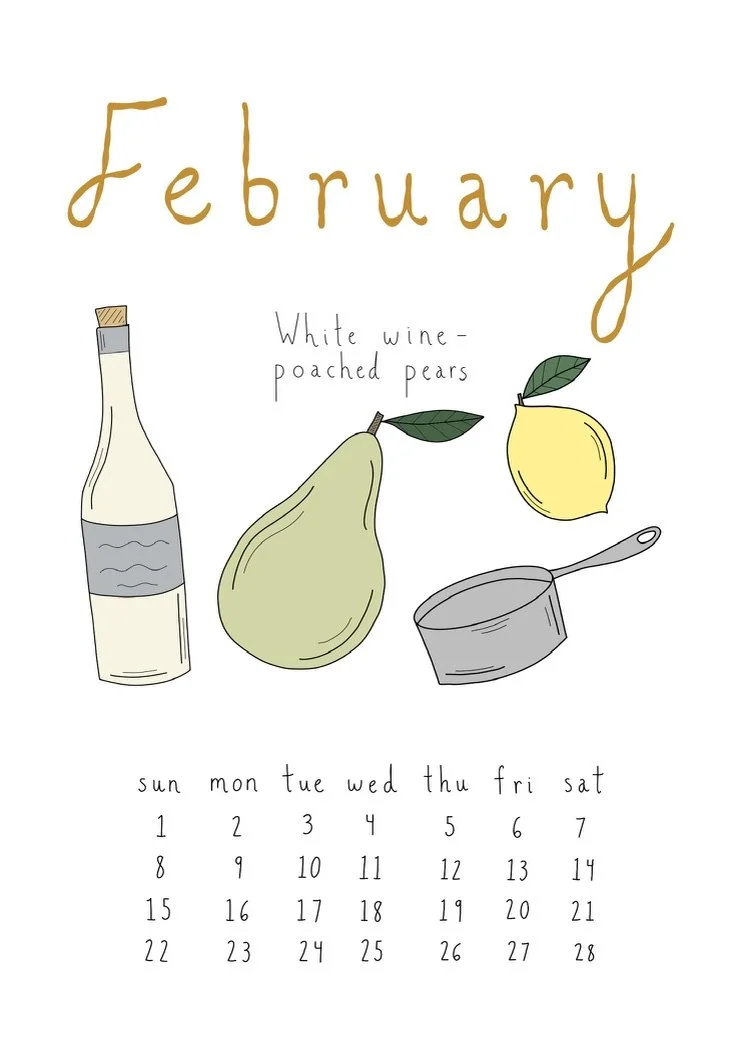 February
White wine-
poached pears
sun mon tue wed thu fri sat
1 2 3 4 5 6 7
8 9 10 11 12 13 14
15 16 17 18 19 20 21
22 23 24 25 26 27 28